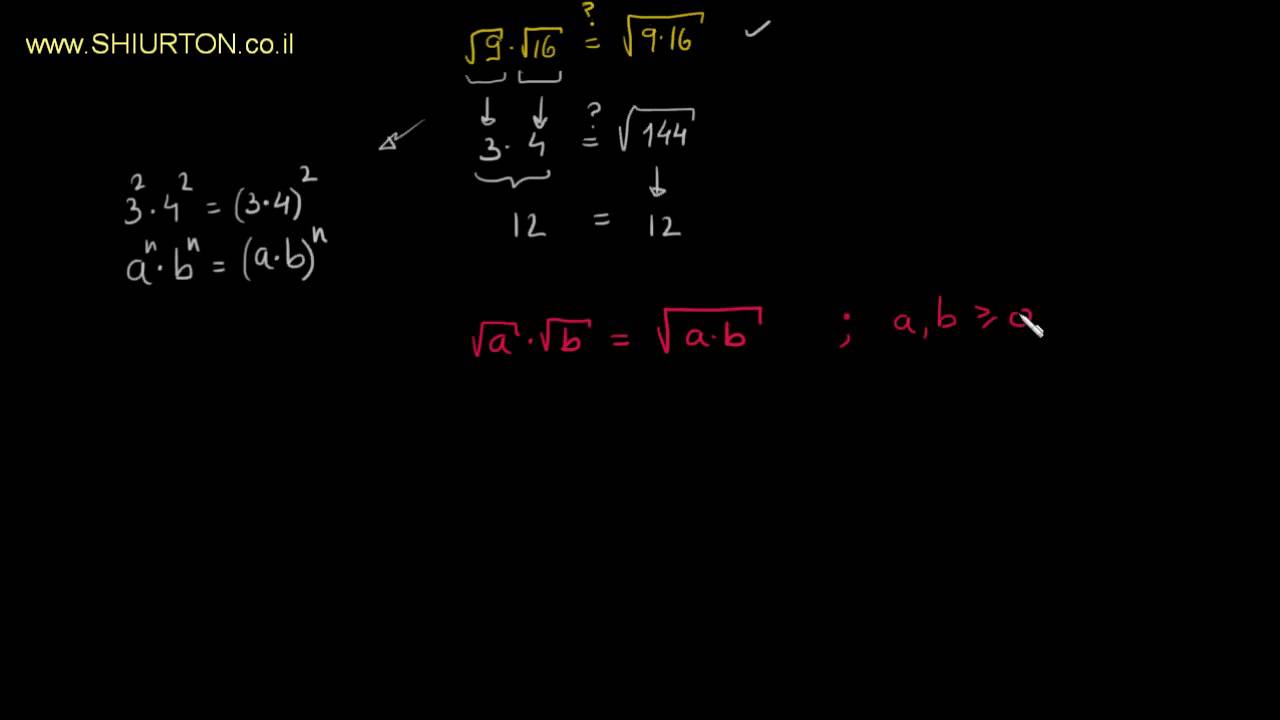 www.SHIURTON.co.il
√9 · √16 ?= √9·16 ✓
3 · 4 ?= √144
12 = 12
3² · 4² = (3·4)²
aⁿ · bⁿ = (a·b)ⁿ
√a · √b = √a·b ; a, b ≥ 0